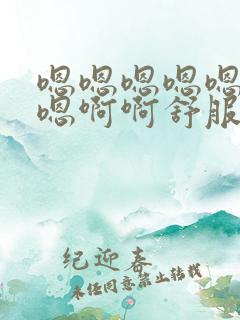 嗯嗯嗯嗯嗯
嗯啊啊舒服
纪迎春
未经同意禁止转载